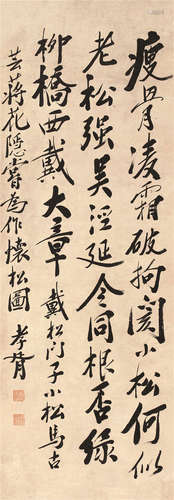 瘦骨凌霜破拘閡小松何似
老松强吳涇延令同根否綠
柳橋西戴大章 戴松門子小松馬吉
芸蔣花隱嘗為作懷松圖 孝胥